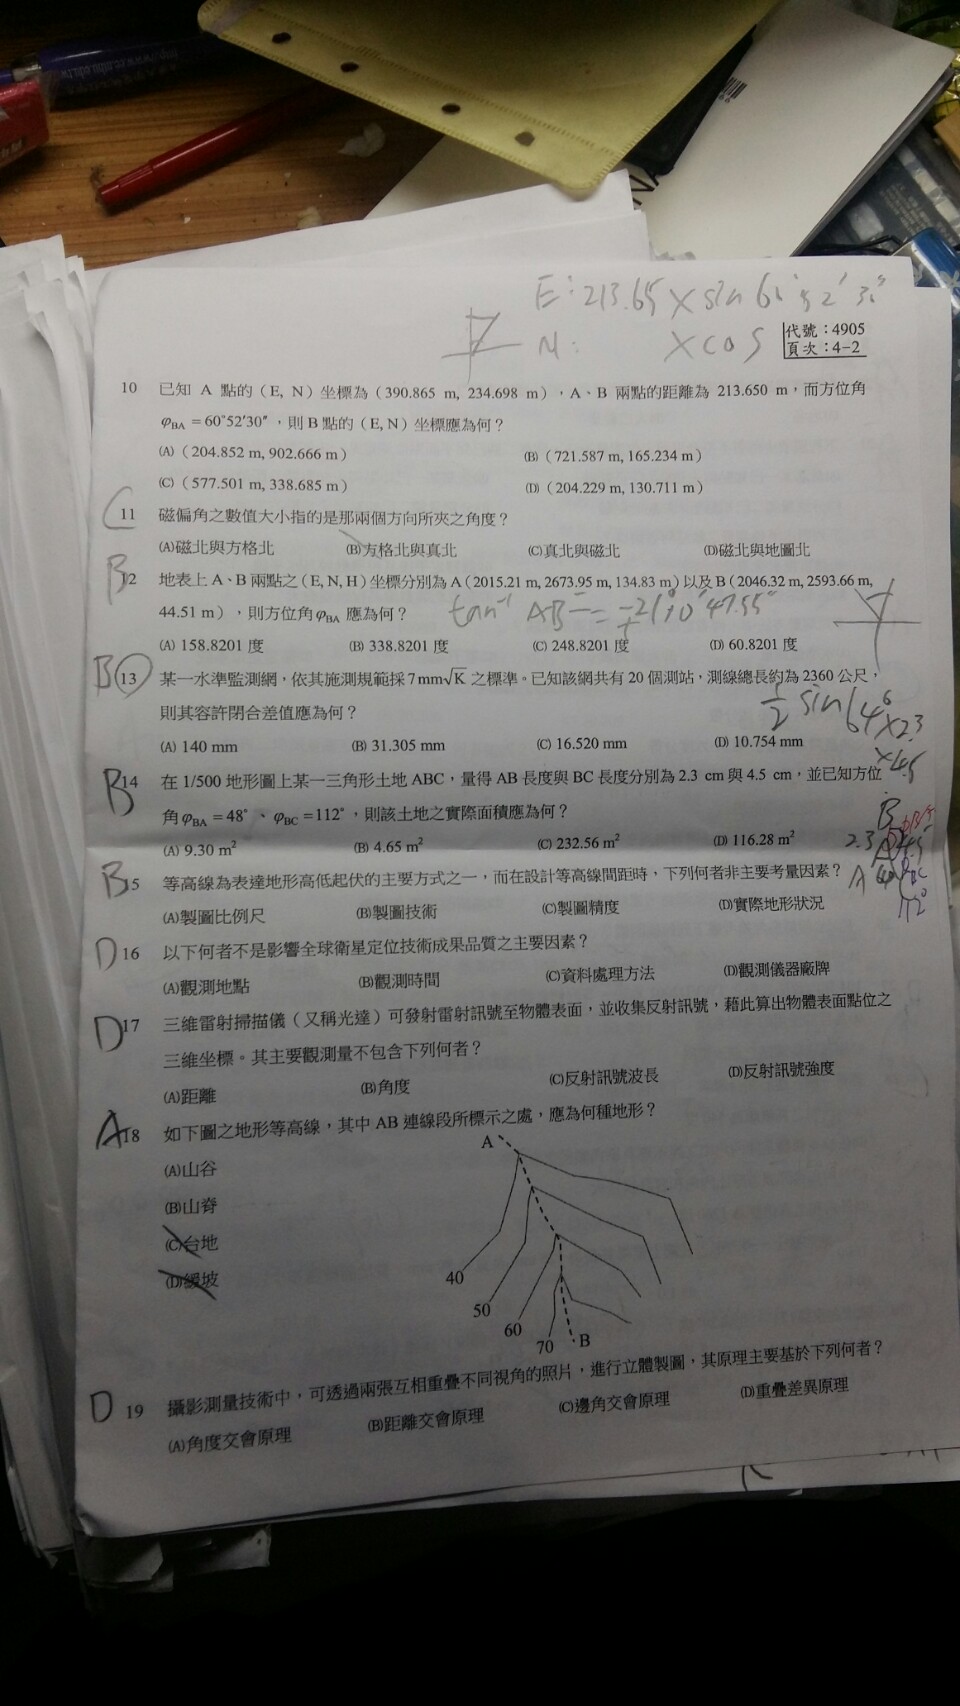 E:213.65 X sin 60°52'30"
N: X cos
代號：4905
頁次：4-2
10 已知 A 點的（E, N）坐標為（390.865 m, 234.698 m），A、B 兩點的距離為 213.650 m，而方位角
φBA＝60°52′30″，則 B 點的（E, N）坐標應為何？
(A)（204.852 m, 902.666 m） (B)（721.587 m, 165.234 m）
(C)（577.501 m, 338.685 m） (D)（204.229 m, 130.711 m）
C 11 磁偏角之數值大小指的是那兩個方向所夾之角度？
(A)磁北與方格北 (B)方格北與真北 (C)真北與磁北 (D)磁北與地圖北
B 12 地表上 A、B 兩點之（E, N, H）坐標分別為 A（2015.21 m, 2673.95 m, 134.83 m）以及 B（2046.32 m, 2593.66 m,
44.51 m），則方位角φBA 應為何？ tan⁻¹ AB
(A) 158.8201 度 (B) 338.8201 度 (C) 248.8201 度 (D) 60.8201 度
B 13 某一水準監測網，依其施測規範採 7 mm√K 之標準。已知該網共有 20 個測站，測線總長約為 2360 公尺，
則其容許閉合差值應為何？ 1/2 sin 64° X2.3
(A) 140 mm (B) 31.305 mm (C) 16.520 mm (D) 10.754 mm
X4.5
B 14 在 1/500 地形圖上某一三角形土地 ABC，量得 AB 長度與 BC 長度分別為 2.3 cm 與 4.5 cm，並已知方位
角φBA＝48°、φBC＝112°，則該土地之實際面積應為何？ B
(A) 9.30 m² (B) 4.65 m² (C) 232.56 m² (D) 116.28 m² 2.3 4.5
B 15 等高線為表達地形高低起伏的主要方式之一，而在設計等高線間距時，下列何者非主要考量因素？ A
(A)製圖比例尺 (B)製圖技術 (C)製圖精度 (D)實際地形狀況 112°
D 16 以下何者不是影響全球衛星定位技術成果品質之主要因素？
(A)觀測地點 (B)觀測時間 (C)資料處理方法 (D)觀測儀器廠牌
D 17 三維雷射掃描儀（又稱光達）可發射雷射訊號至物體表面，並收集反射訊號，藉此算出物體表面點位之
三維坐標。其主要觀測量不包含下列何者？
(A)距離 (B)角度 (C)反射訊號波長 (D)反射訊號強度
A 18 如下圖之地形等高線，其中 AB 連線段所標示之處，應為何種地形？
A
(A)山谷
(B)山脊
(C)台地
(D)緩坡
40
50
60
70
B
D 19 攝影測量技術中，可透過兩張互相重疊不同視角的照片，進行立體製圖，其原理主要基於下列何者？
(A)角度交會原理 (B)距離交會原理 (C)邊角交會原理 (D)重疊差異原理